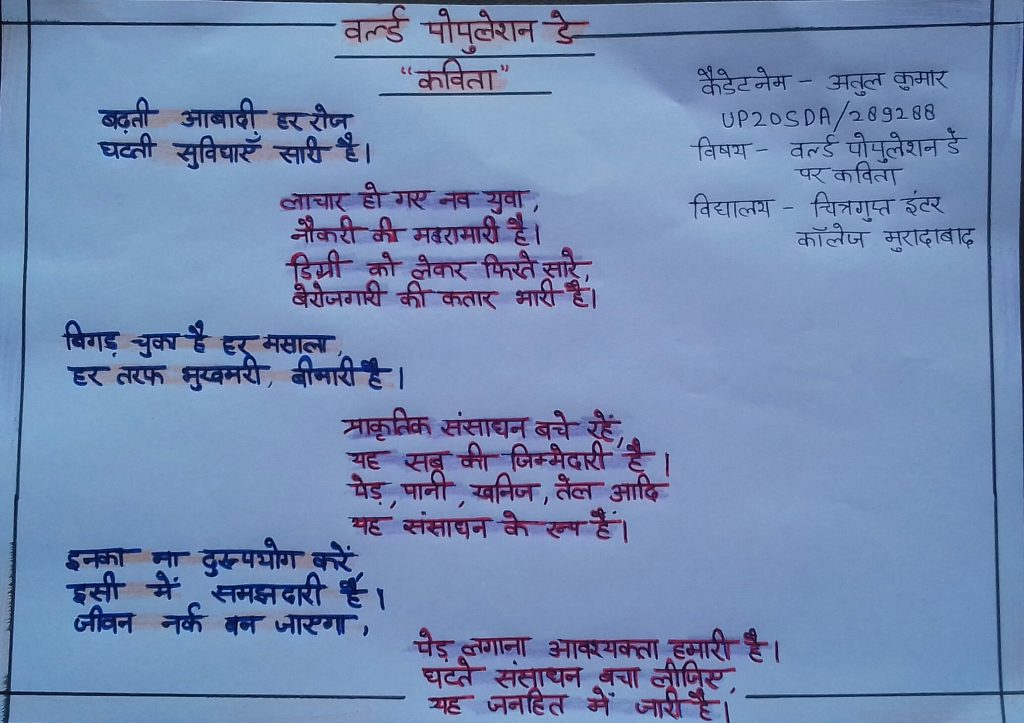 वर्ल्ड पोपुलेशन डे
"कविता"
कैडेट नेम - अतुल कुमार
UP20SDA/289288
विषय - वर्ल्ड पोपुलेशन डे
पर कविता
विद्यालय - चित्रगुप्त इंटर
कॉलेज मुरादाबाद
बढ़ती आबादी हर रोज
घटती सुविधाएँ सारी है।
लाचार हो गए नव युवा,
नौकरी की मढरामारी है।
डिग्री को लेकर फिरते सारे,
बेरोजगारी की कतार भारी है।
बिगड़ चुका है हर मसाला,
हर तरफ भुखमरी, बीमारी है।
प्राकृतिक संसाधन बचे रहें,
यह सब की जिम्मेदारी है।
पेड़, पानी, खनिज, तेल आदि
यह संसाधन के रूप हैं।
इनका ना दुरूपयोग करें,
इसी में समझदारी है।
जीवन नर्क बन जाएगा,
पेड़ लगाना आवश्यकता हमारी है।
घटते संसाधन बचा लीजिए,
यह जनहित में जारी है।